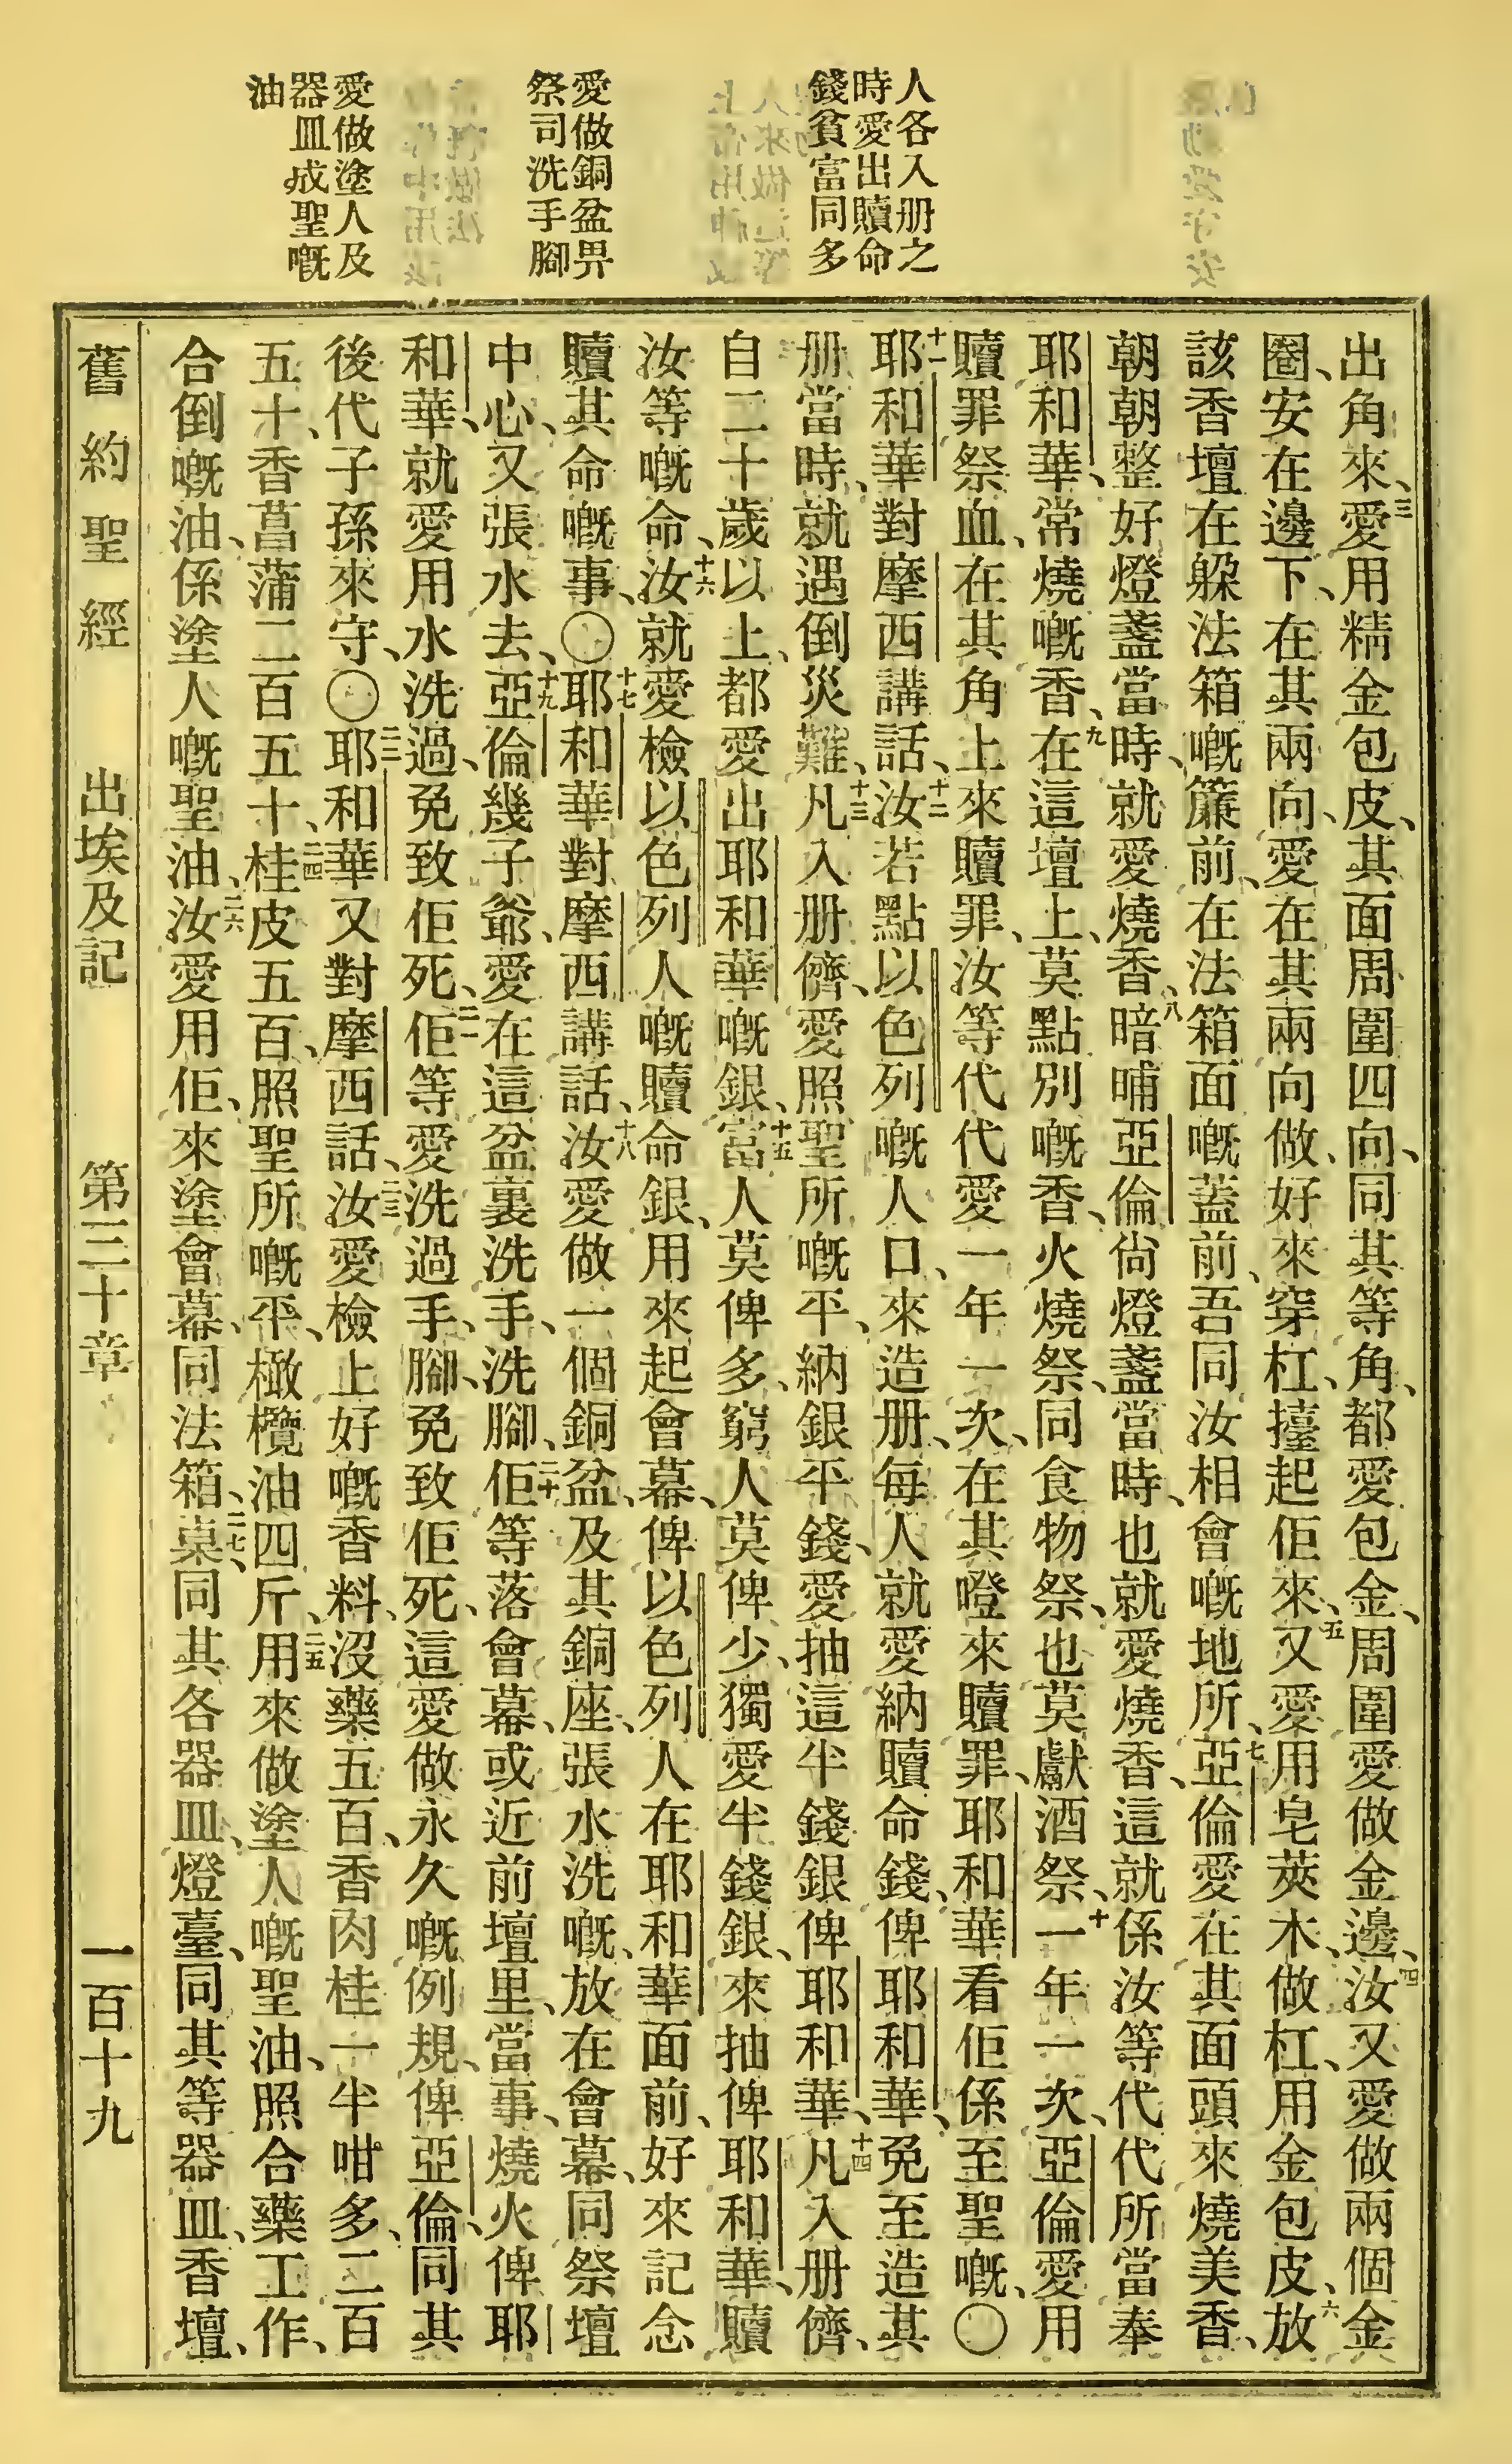 人各入册之
時愛出贖命
錢貧富同多
愛做銅盆畀
祭司洗手腳
愛做塗人及
器皿成聖嘅
油
出角來、三愛用精金包皮、其面周圍四向、同其等角、都愛包金、周圍愛做金邊、四汝又愛做兩個金
圈、安在邊下、在其兩向、愛在其兩向做、好來穿杠、擡起佢來、五又愛用皂莢木、做杠、用金包皮、六放
該香壇在躲法箱嘅簾前、在法箱面嘅蓋前、吾同汝相會嘅地所、七亞倫愛在其面頭來燒美香、
朝朝整好燈盞當時、就愛燒香、八暗晡亞倫尙燈盞當時、也就愛燒香、這就係汝等代代所當奉
耶和華、常燒嘅香、九在這壇上、莫點別嘅香、火燒祭、同食物祭、也莫獻酒祭、十一年一次、亞倫愛用
贖罪祭血、在其角上來贖罪、汝等代代愛一年一次、在其嶝來贖罪、耶和華看佢係至聖嘅、〇
十一耶和華對摩西講話、十二汝若點以色列嘅人口、來造册、每人就愛納贖命錢、俾耶和華、免至造其
册當時、就遇倒災難、十三凡入册儕、愛照聖所嘅平、納銀平錢、愛抽這半錢銀俾耶和華、十四凡入册儕、
自二十歲以上、都愛出耶和華嘅銀、十五富人莫俾多、窮人莫俾少、獨愛半錢銀、來抽俾耶和華、贖
汝等嘅命、十六汝就愛檢以色列人嘅贖命銀、用來起會幕、俾以色列人在耶和華面前、好來記念
贖其命嘅事、〇十七耶和華對摩西講話、十八汝愛做一個銅盆、及其銅座、張水洗嘅、放在會幕、同祭壇
中心、又張水去、十九亞倫幾子爺、愛在這盆裏洗手、洗腳、二十佢等落會幕、或近前壇里、當事、燒火俾耶
和華、就愛用水洗過、免致佢死、二一佢等愛洗過手、腳、免致佢死、這愛做永久嘅例規、俾亞倫、同其
後代子孫來守、〇二二耶和華又對摩西話、二三汝愛檢上好嘅香料、沒藥五百、香肉桂一半咁多、二百
五十、香菖蒲二百五十、二四桂皮五百、照聖所嘅平、橄欖油四斤、二五用來做塗人嘅聖油、照合藥工作、
合倒嘅油、係塗人嘅聖油、二六汝愛用佢、來塗會幕、同法箱、二七桌同其各器皿、燈臺、同其等器皿、香壇、
舊約聖經 出埃及記 第三十章 一百十九